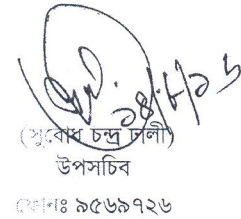 ১৪/৮/১৬
(সুবোধ চন্দ্র ঢালী)
উপসচিব
ফোনঃ ৯৫৬৯৭২৬